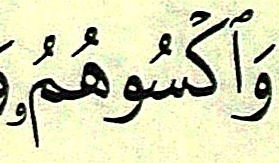 وَٱكْسُوهُمُۥ